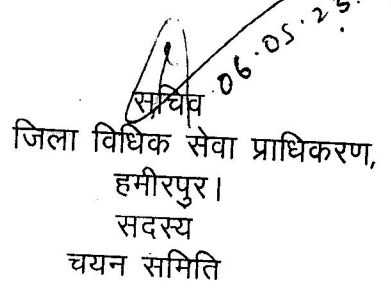 06.05.23.
सचिव
जिला विधिक सेवा प्राधिकरण,
हमीरपुर।
सदस्य
चयन समिति